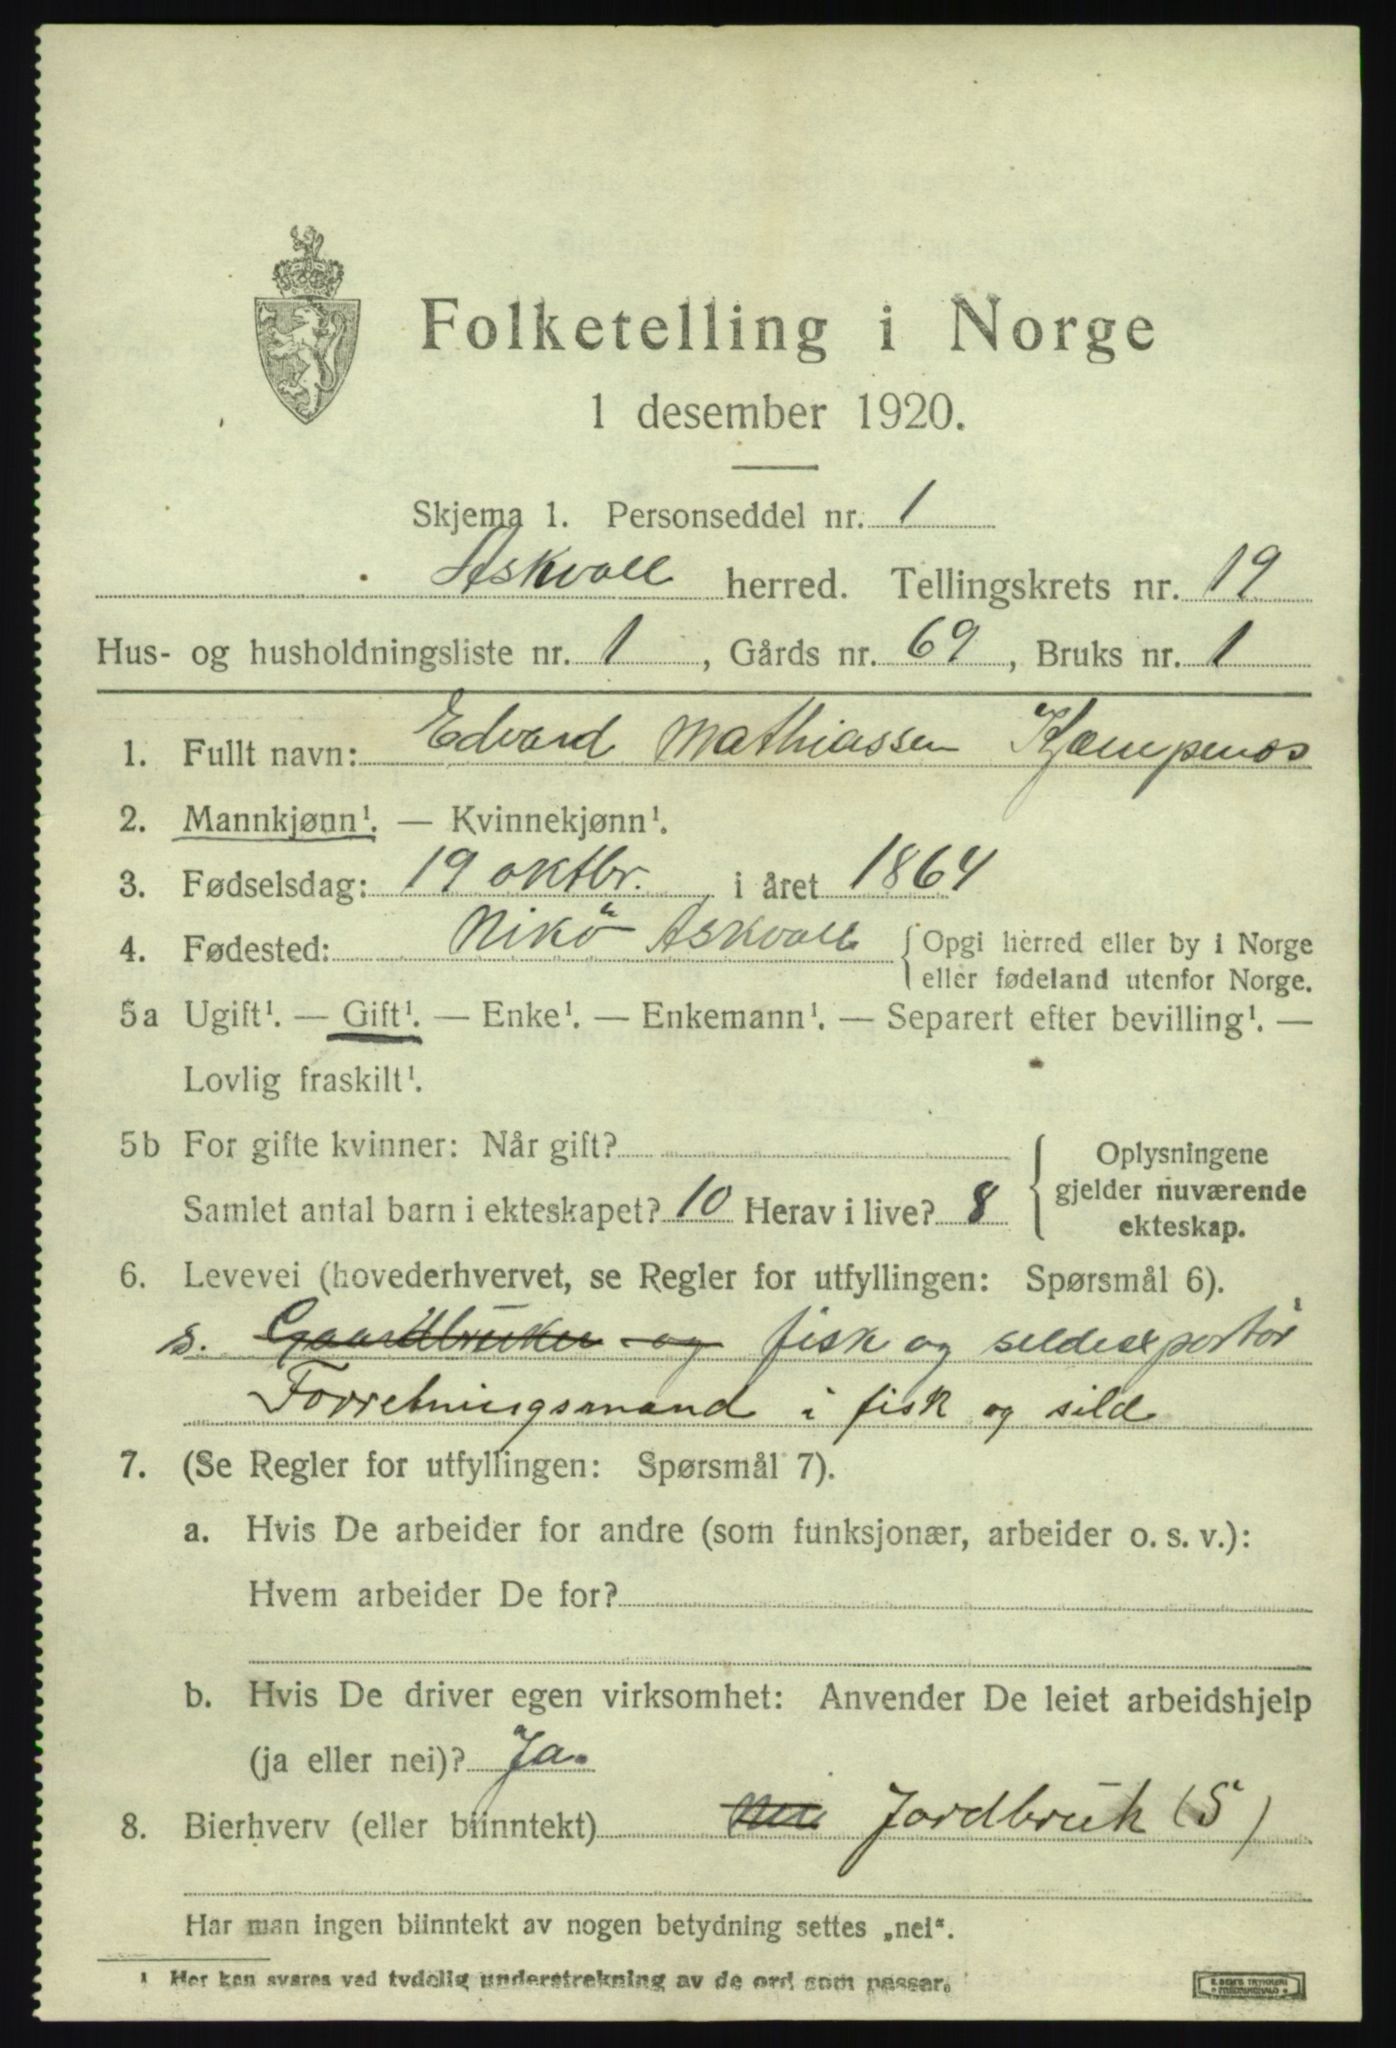 Folketelling i Norge
1 desember 1920.
Skjema 1. Personseddel nr. 1
Askvoll herred. Tellingskrets nr. 19
Hus- og husholdningsliste nr. 1, Gårds nr. 69, Bruks nr. 1
1. Fullt navn: Edvard Mathiassen Kjempenes
2. Mannkjønn¹. — Kvinnekjønn¹.
3. Fødselsdag: 19 oktbr. i året 1864
4. Fødested: Nikö Askvoll { Opgi herred eller by i Norge
eller fødeland utenfor Norge.
5a Ugift¹. — Gift¹. — Enke¹. — Enkemann¹. — Separert efter bevilling¹. —
Lovlig fraskilt¹.
5b For gifte kvinner: Når gift?
Samlet antal barn i ekteskapet? 10 Herav i live? 8
{ Oplysningene
gjelder nuværende
ekteskap.
6. Levevei (hovederhvervet, se Regler for utfyllingen: Spørsmål 6).
s. Gaardbruker og fisk og sildexportør
Forretningsmand i fisk og sild
7. (Se Regler for utfyllingen: Spørsmål 7).
a. Hvis De arbeider for andre (som funksjonær, arbeider o. s. v.):
Hvem arbeider De for?
b. Hvis De driver egen virksomhet: Anvender De leiet arbeidshjelp
(ja eller nei)? Ja.
8. Bierhverv (eller biinntekt) Nei Jordbruk (S)
Har man ingen biinntekt av nogen betydning settes „nei“.
¹ Her kan svares ved tydelig understrekning av de ord som passer.